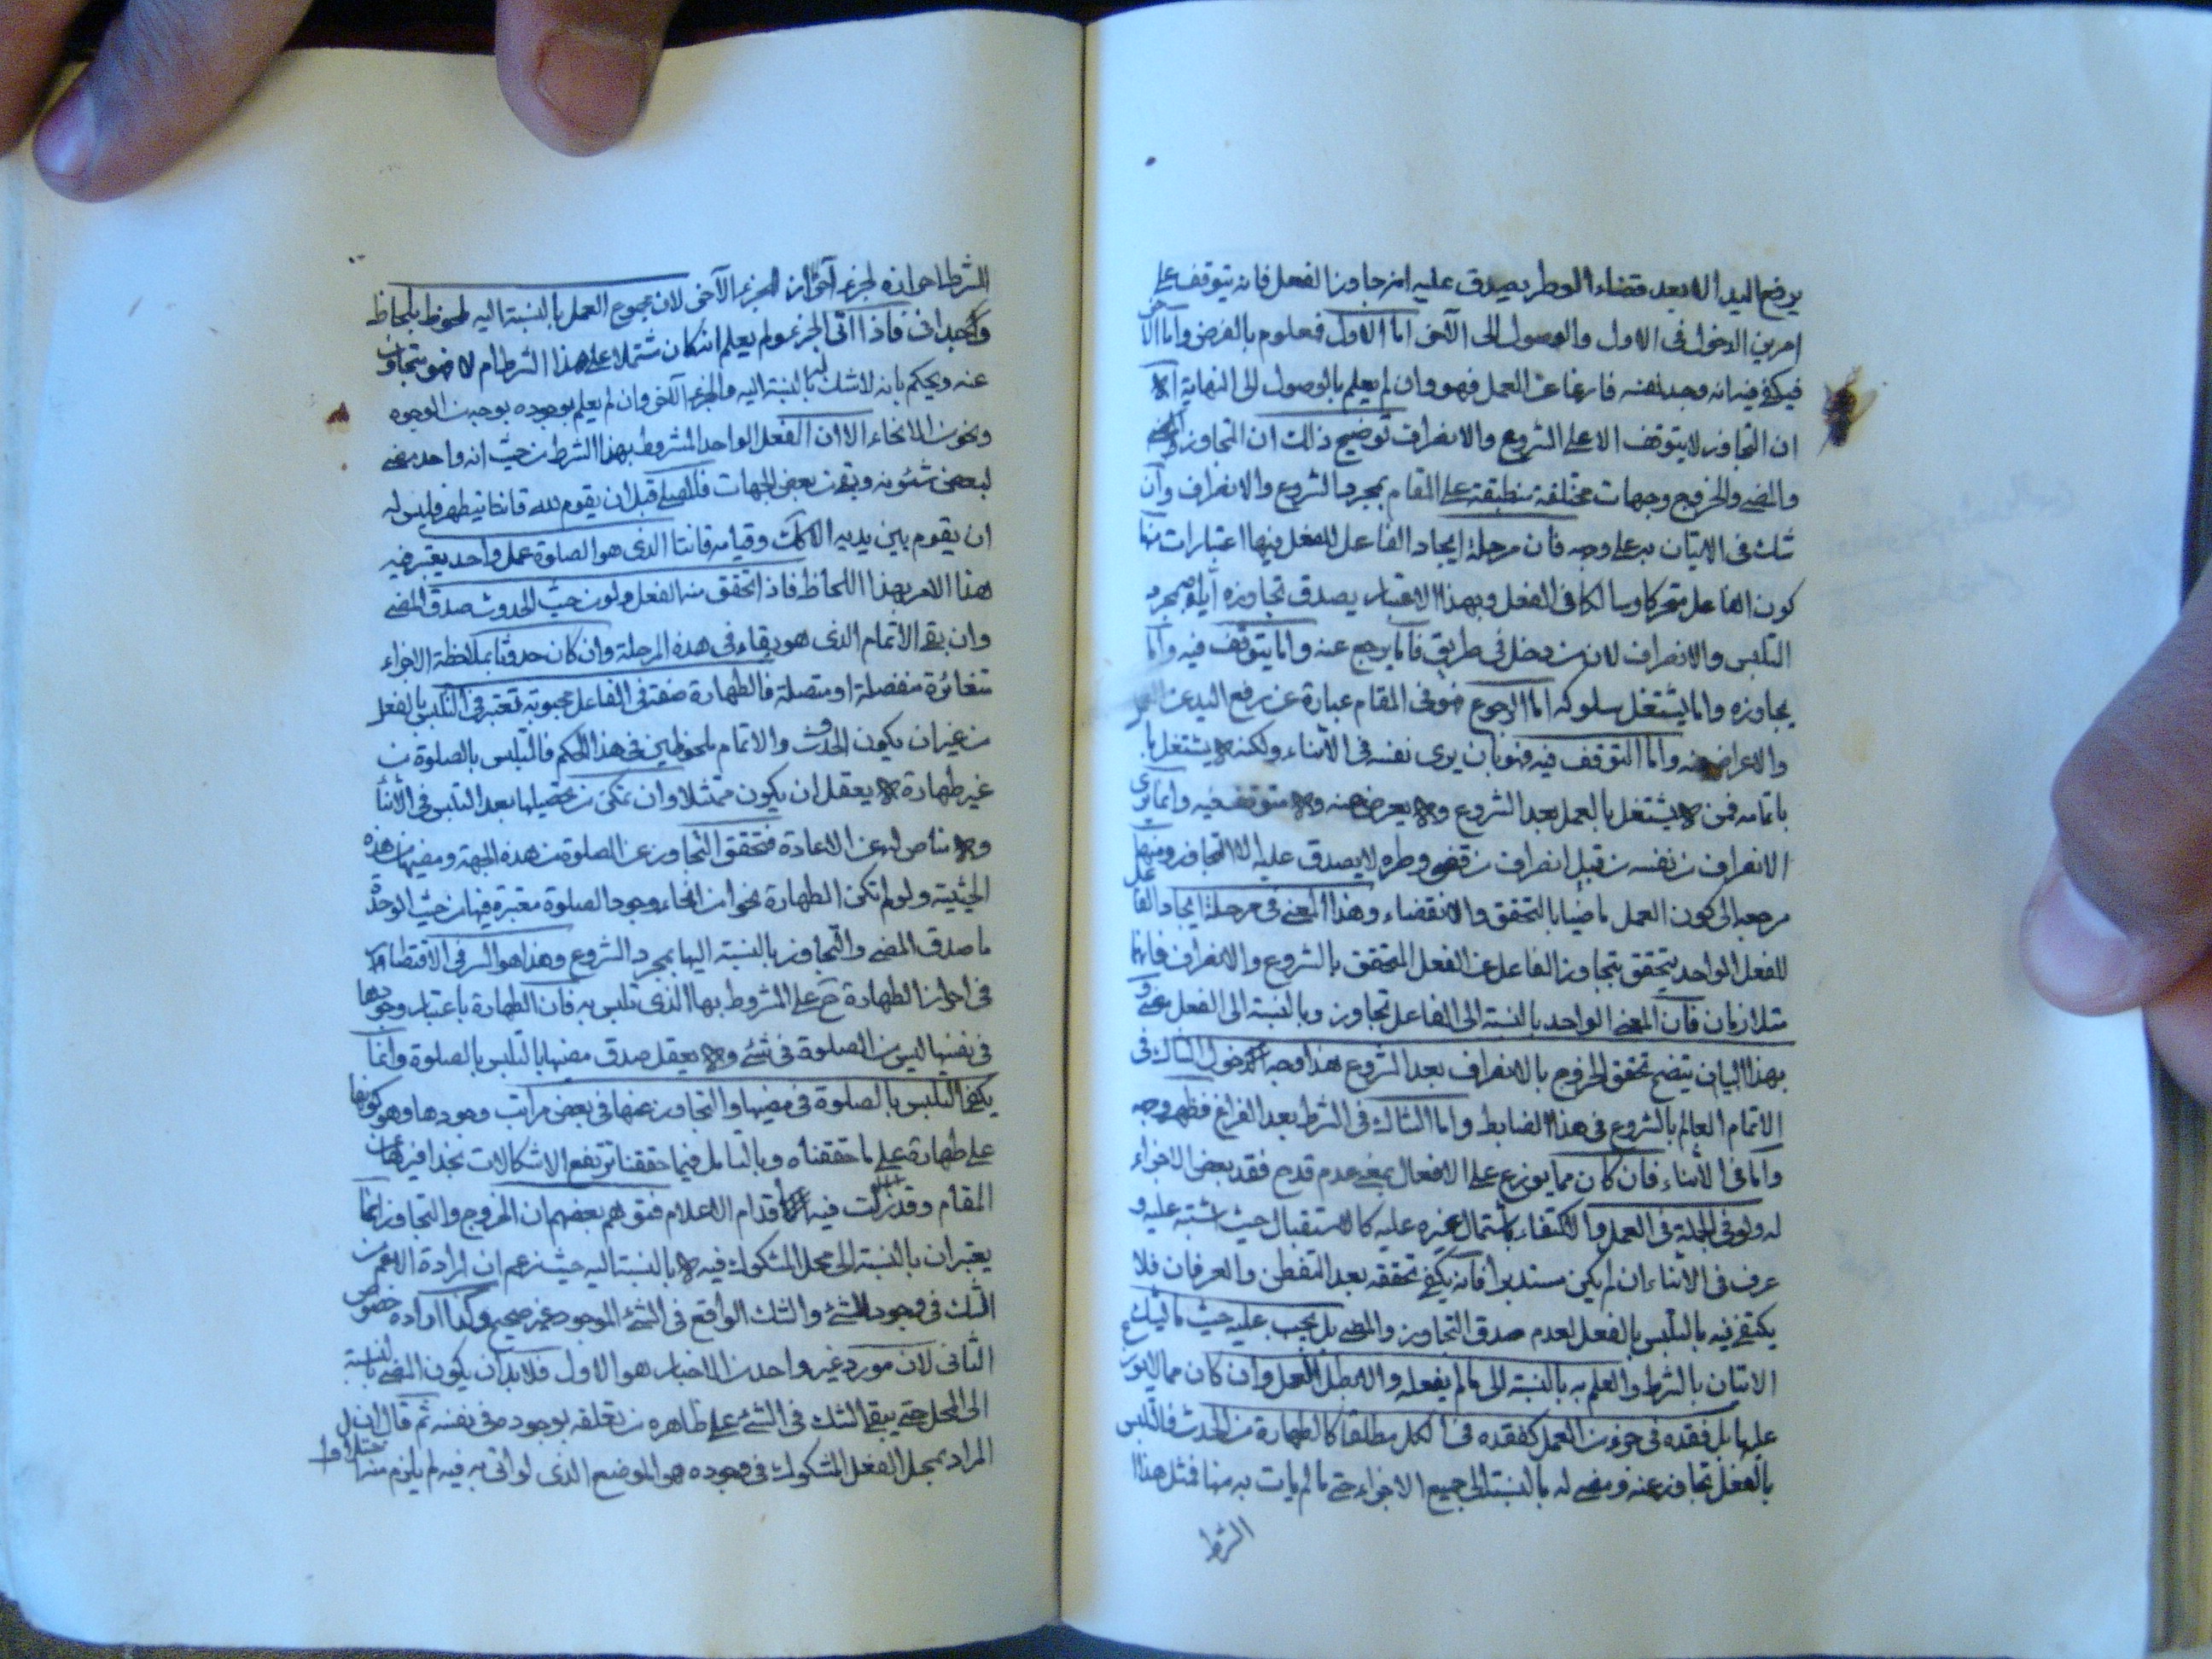 يرفع اليد الا بعد قضاء الوطر يصدق عليه انه جاوز الفعل فانه يتوقف على
امرين الدخول فى الاول والوصول الى الآخر اما الاول فمعلوم بالفرض واما الآخر
فيكفى فيه انه وجد نفسه فارغا عن العمل فهو وان لم يعلم بالوصول الى النهاية الا
ان التجاوز لا يتوقف الا على الشروع والانصراف توضيح ذلك ان التجاوز
والمضى والخروج وجهات مختلفة منطبقة على المقام بمجرد الشروع والانصراف وان
شك فى الاتيان به على وجهه فان مرحلة ايجاد الفاعل للفعل فيها اعتبارات منها
كون الفاعل متحركا وسالكا فى الفعل وبهذا الاعتبار يصدق تجاوزه اياه بمجرد
التلبس والانصراف لان من دخل فى طريق فاما يرجع عنه واما يتوقف فيه واما
يجاوزه واما يشتغل بسلوكه اما الرجوع فهو فى المقام عبارة عن رفع اليد عن العمل
والاعراض عنه واما التوقف فيه فهو بان يرى نفسه فى الاثناء ولكنه لا يشتغل
باتمامه فمن لا يشتغل بالعمل بعد الشروع ولا يعرض عنه ولا متوقف فيه وانما يرى
الانصراف من نفسه من قبيل انصراف من قضى وطره لا يصدق عليه الا التجاوز ومنها
مرجعه الى كون العمل ماضيا بالتحقق والانقضاء وهذا المعنى فى مرحلة ايجاد الفاعل
للفعل الواحد يتحقق بتجاوز الفاعل عن الفعل المتحقق بالشروع والانصراف فانهما
متلازمان فان المعنى الواحد بالنسبة الى الفاعل تجاوز وبالنسبة الى الفعل مضى و
بهذا البيان يتضح تحقق الخروج بالانصراف بعد الشروع هذا وجه دخول الشاك فى
الاتمام العالم بالشروع فى هذا الضابط واما الشاك فى الشرط بعد الفراغ فظهر وجهه
واما فى الاثناء فان كان مما يوزع على الافعال بمعنى عدم قدح فقد بعض الاجزاء
له ولو فى الجملة فى العمل والاكتفاء باشتمال غيره عليه كالاستقبال حيث اشتبه عليه و
عرف فى الاثناء ان لم يكن مستدبرا فانه يكفى تحققه بعد التفطن والعرفان فلا
يكتفى فيه بالتلبس بالفعل لعدم صدق التجاوز والمضى بل يجب عليه حيث ما شك
الاتيان بالشرط والعلم به بالنسبة الى ما لم يفعله والا بطل العمل وان كان مما لا يوزع
عليها بل فقده فى جزء من العمل كفقده فى الكل مطلقا كالطهارة من الحدث فالتلبس
بالفعل تجاوز عنه ومضى له بالنسبة الى جميع الاجزاء حتى ما لم يات به منها فمثل هذا
الشرط
الشرط احرازه لجزء احراز للجزء الآخر لان مجموع العمل بالنسبة اليه ملحوظ بلحاظ
وحدانى فاذا اتى الجزء ولم يعلم انه كان مشتملا على هذا الشرط ام لا فهو يتجاوز
عنه ويحكم بانه لا شك له بالنسبة اليه والجزء الآخر وان لم يعلم بوجوده بوجه من الوجوه
ونحو من الانحاء الا ان الفعل الواحد المشروط بهذا الشرط من حيث انه واحد مضى
لبعض شئونه وبقى من بعض الجهات فللمصلى قبل ان يقوم لله قانتا يتطهر فليس له
ان يقوم بين يديه الا كذلك وقيامه قانتا الذى هو الصلوة عمل واحد يعتبر فيه
هذا الامر بهذا اللحاظ فاذا تحقق منه الفعل ولو من حيث الحدوث صدق المضى
وان بقى الاتمام الذى هو بقاء فى هذه المرحلة وان كان حدوثا بملاحظة الاجزاء
متغائرة منفصلة او متصلة فالطهارة صفة فى الفاعل محبوبة تعتبر فى التلبس بالفعل
من غير ان يكون الحدوث والاتمام ملحوظين فى هذا الحكم فالتلبس بالصلوة من
غير طهارة لا يعقل ان يكون ممتثلا وان تمكن من تحصيلها بعد التلبس فى الاثناء
ولا مناص له عن الاعادة فتحقق التجاوز عن الصلوة من هذه الجهة ومضيها من هذه
الحيثية ولو لم تكن الطهارة نحوا من انحاء وجود الصلوة معتبرة فيها من حيث الوحدة
ما صدق المضى والتجاوز بالنسبة اليها بمجرد الشروع وهذا هو السر فى الاقتصار
فى احراز الطهارة ح على المشروط بها الذى تلبس به فان الطهارة باعتبار وجودها
فى نفسها ليس من الصلوة فى شئ ولا يعقل صدق مضيها بالتلبس بالصلوة وانما
يكفى التلبس بالصلوة فى مضيها والتجاوز عنها فى بعض مراتب وجودها وهو كونها
على طهارة على ما حققناه وبالتامل فيما حققنا ترتفع الاشكالات بحذافيرها عن
المقام وقد زلت فيه اقدام الاعلام فتوهم بعضهم ان الخروج والتجاوز انما
يعتبران بالنسبة الى محل المشكوك فيه لا بالنسبة اليه حيث زعم ان ارادة الاعم من
الشك فى وجود الشئ والشك الواقع فى الشئ الموجود غير صحيح وكذا ارادة خصوص
الثانى لان مورد غير واحد من الاخبار هو الاول فلا بد ان يكون المضى بالنسبة
الى المحل حتى يبقى الشك فى الشئ على ظاهره من تعلقه بوجوده فى نفسه ثم قال ان
المراد بمحل الفعل المشكوك فى وجوده هو الموضع الذى لو اتى به فيه لم يلزم منه اختلال